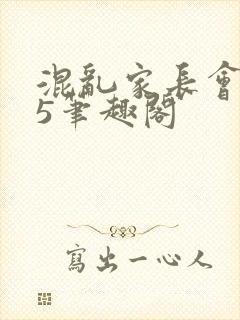 混亂家長會
5筆趣閣
寫出一心人